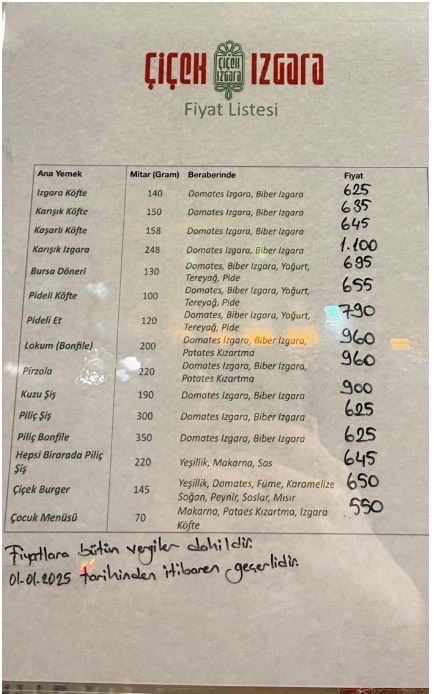 ÇİÇEK ÇİÇEK IZGARA IZGARA
Fiyat Listesi
Ana Yemek Mitar (Gram) Beraberinde Fiyat
Izgara Köfte 140 Domates Izgara, Biber Izgara 625
Karışık Köfte 150 Domates Izgara, Biber Izgara 635
Kaşarlı Köfte 158 Domates Izgara, Biber Izgara 645
Karışık Izgara 248 Domates Izgara, Biber Izgara 1.100
Bursa Döneri 130 Domates, Biber Izgara, Yoğurt, Tereyağ, Pide 695
Pideli Köfte 100 Domates, Biber Izgara, Yoğurt, Tereyağ, Pide 655
Pideli Et 120 Domates, Biber Izgara, Yoğurt, Tereyağ, Pide 790
Lokum (Bonfile) 200 Domates Izgara, Biber Izgara, Patates Kızartma 960
Pirzola 220 Domates Izgara, Biber Izgara, Patates Kızartma 960
Kuzu Şiş 190 Domates Izgara, Biber Izgara 900
Piliç Şiş 300 Domates Izgara, Biber Izgara 625
Piliç Bonfile 350 Domates Izgara, Biber Izgara 625
Hepsi Birarada Piliç Şiş 220 Yeşillik, Makarna, Sos 645
Çiçek Burger 145 Yeşillik, Domates, Füme, Karamelize Soğan, Peynir, Soslar, Mısır 650
Çocuk Menüsü 70 Makarna, Pataes Kızartma, Izgara Köfte 550
Fiyatlara bütün vergiler dahildir.
01.01.2025 tarihinden itibaren geçerlidir.